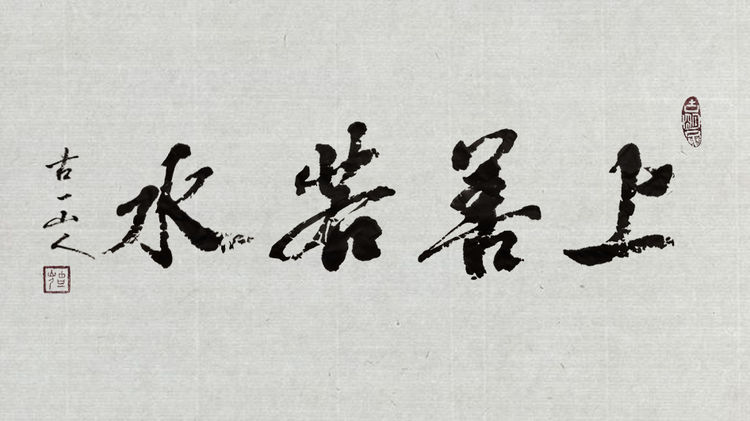 上善若水
古一山人